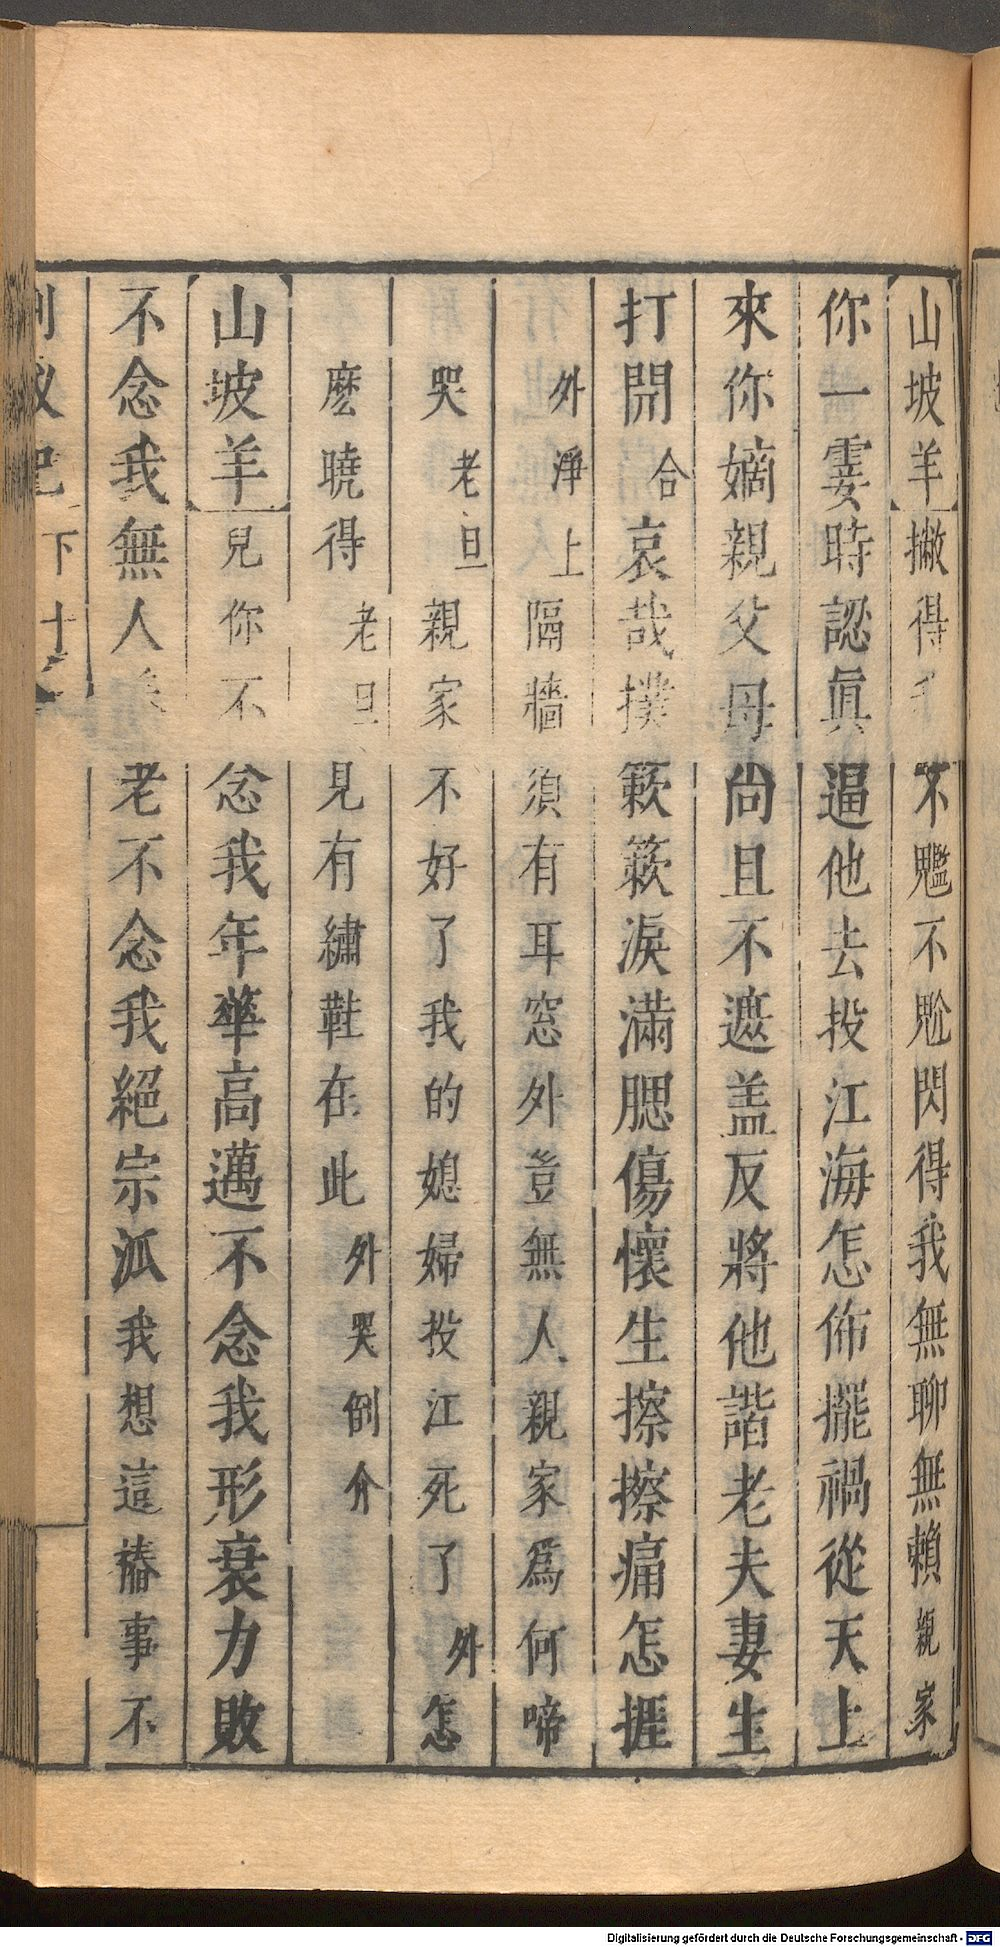 山坡羊撇得不尷不尬閃得我無聊無賴親家
你一霎時認眞逼他去投江海怎佈擺禍從天上
來你嫡親父母尚且不遮盖反將他諧老夫妻生
打開合哀哉撲簌簌淚滿腮傷懷生擦擦痛怎捱
外淨上隔牆須有耳窓外豈無人親家爲何啼
哭老旦親家不好了我的媳婦投江死了外怎
麽曉得老旦見有繡鞋在此外哭倒介
山坡羊兒你不念我年華高邁不念我形衰力敗
不念我無人老不念我絕宗派我想這樁事不
荆釵記下十
Digitalisierung gefördert durch die Deutsche Forschungsgemeinschaft - DFG